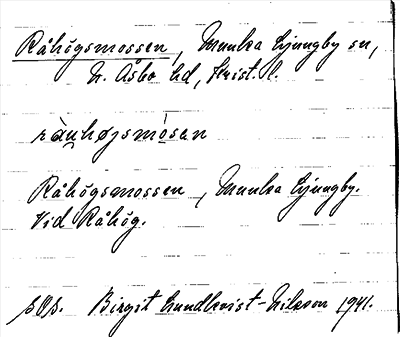 Råhögsmossen, Munka Ljungby sn,
N. Åsbo hd, Krist. l.
rånhøjsmosan
Råhögsmossen, Munka Ljungby.
Vid Råhög.
Birgit Lundkvist-Nilsson 1941.